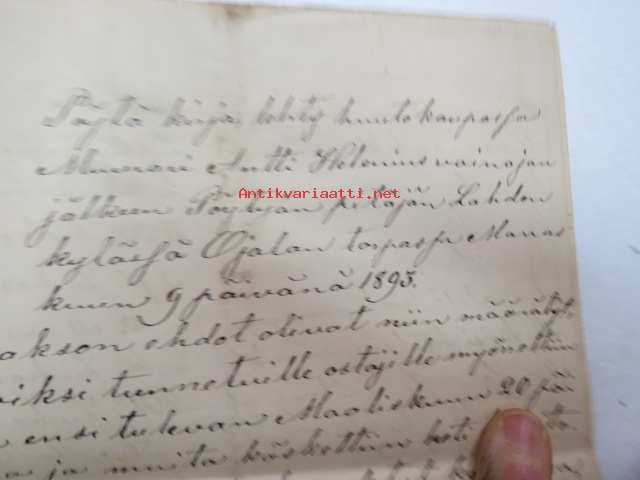 Pöytä kirja, tehty huutokaupassa
Muurari Antti Helenius vainajan
Antikvariaatti.net
jälkeen Pöytyän pitäjän Lahden
kylässä Ojalan torpassa Marras
kuun 9 päivänä 1893.
akson ehdot olivat niin määrätyt,
iksi tunnetuille ostajille myönnettiin
ensi tulevan Maaliskuun 20 päi
a ja muita käskettiin heti